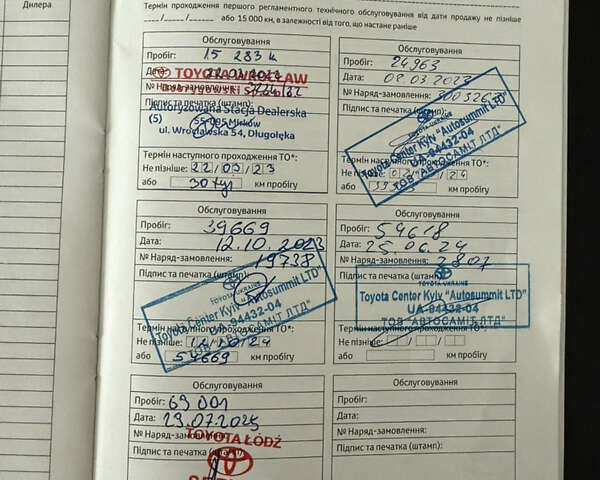 Дилера
Термін проходження першого регламентного технічного обслуговування від дати продажу не пізніше
___/___/______ або 15 000 км, в залежності від того, що настане раніше
Обслуговування
Пробіг: 15 283 к
Дата:
TOYOTA WROCŁAW
№ Наряд-замовлення:
Підпис та печатка (штамп):
Autoryzowana Stacja Dealerska
(5) 55-095 Mirków
ul. Wrocławska 54, Długołęka
Термін наступного проходження ТО*:
Не пізніше: 22/07/23
або 30 тус км пробігу
Обслуговування
Пробіг: 24963
Дата: 08 03 2023
№ Наряд-замовлення:
Підпис та печатка (штамп):
Toyota Center Kyiv "Autosummit LTD"
UA-94432-04
ТОВ "АВТОСАМІТ ЛТД"
Термін наступного проходження ТО*:
Не пізніше: 24
або км пробігу
Обслуговування
Пробіг: 39669
Дата: 12.10.2023
№ Наряд-замовлення: 19738
Підпис та печатка (штамп):
TOYOTA-UKRAINE
Toyota Center Kyiv "Autosummit LTD"
UA-94432-04
ТОВ "АВТОСАМІТ ЛТД"
Термін наступного проходження ТО*:
Не пізніше: 24
або 54669 км пробігу
Обслуговування
Пробіг: 54618
Дата: 25.06.24
№ Наряд-замовлення: 2807
Підпис та печатка (штамп):
TOYOTA-UKRAINE
Toyota Center Kyiv "Autosummit LTD"
UA-94432-04
ТОВ "АВТОСАМІТ ЛТД"
Термін наступного проходження ТО*:
Не пізніше:
або км пробігу
Обслуговування
Пробіг: 69 001
Дата: 29.07.2025
№ Наряд-замовлення:
TOYOTA ŁÓDŹ
Підпис та печатка (штамп):
Обслуговування
Пробіг:
Дата:
№ Наряд-замовлення:
Підпис та печатка (штамп):